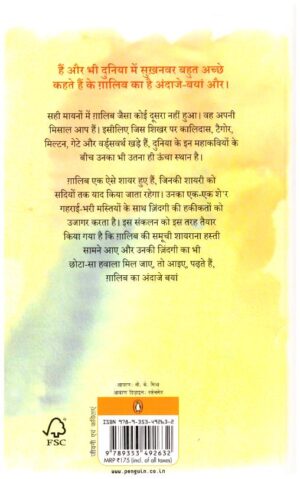 हैं और भी दुनिया में सुख़नवर बहुत अच्छे
कहते हैं के ग़ालिब का है अंदाजे-बयां और।
सही मायनों में ग़ालिब जैसा कोई दूसरा नहीं हुआ। वह अपनी
मिसाल आप हैं। इसीलिए जिस शिखर पर कालिदास, टैगोर,
मिल्टन, गेटे और वर्ड्सवर्थ खड़े हैं, दुनिया के इन महाकवियों के
बीच उनका भी उतना ही ऊंचा स्थान है।
ग़ालिब एक ऐसे शायर हुए हैं, जिनकी शायरी को
सदियों तक याद किया जाता रहेगा। उनका एक-एक शे'र
गहराई-भरी मस्तियों के साथ ज़िंदगी की हकीकतों को
उजागर करता है। इस संकलन को इस तरह तैयार
किया गया है कि ग़ालिब की समूची शायराना हस्ती
सामने आए और उनकी ज़िंदगी का भी
छोटा-सा हवाला मिल जाए, तो आइए, पढ़ते हैं,
ग़ालिब का अंदाजे बयां
आवरण:
आवरण डिज़ाइन:
FSC
जीवनी एवं कविताएं
ISBN 978-9-353-49263-2
9 789353 492632
MRP ₹175 (incl. of all taxes)
www.penguin.co.in